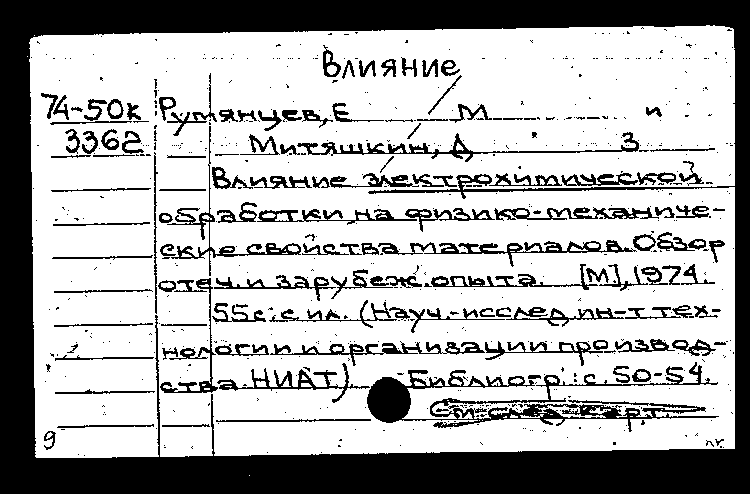 Влияние
74-50к Румянцев, Е М и
3362 Митяшкин, Д З
Влияние электрохимической
обработки на физико-механиче-
ские свойства материалов. Обзор
отеч. и зарубеж. опыта. [М], 1974.
55с. с ил. (Науч.-исслед ин-т тех-
нологии и организации производ-
ства НИАТ) Библиогр: с. 50-54.
См след карт.
9